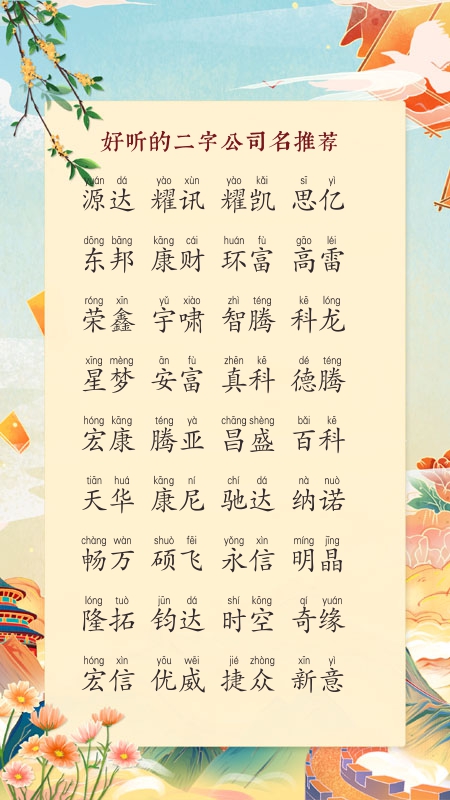 好听的二字公司名推荐
yuán dá yào xùn yào kǎi sī yì
源达 耀讯 耀凯 思亿
dōng bāng kāng cái huán fù gāo léi
东邦 康财 环富 高雷
róng xīn yǔ xiào zhì téng kē lóng
荣鑫 宇啸 智腾 科龙
xīng mèng ān fù zhēn kē dé téng
星梦 安富 真科 德腾
hóng kāng téng yà chāng shèng bǎi kē
宏康 腾亚 昌盛 百科
tiān huá kāng ní chí dá nà nuò
天华 康尼 驰达 纳诺
chàng wàn shuò fēi yǒng xìn míng jīng
畅万 硕飞 永信 明晶
lóng tuò jūn dá shí kōng qí yuán
隆拓 钧达 时空 奇缘
hóng xìn yōu wēi jié zhòng xīn yì
宏信 优威 捷众 新意